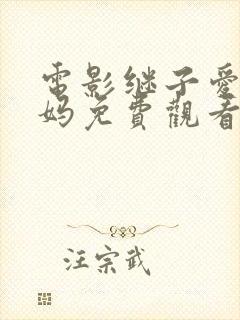 電影继子爱
妈免費觀看
汪宗武